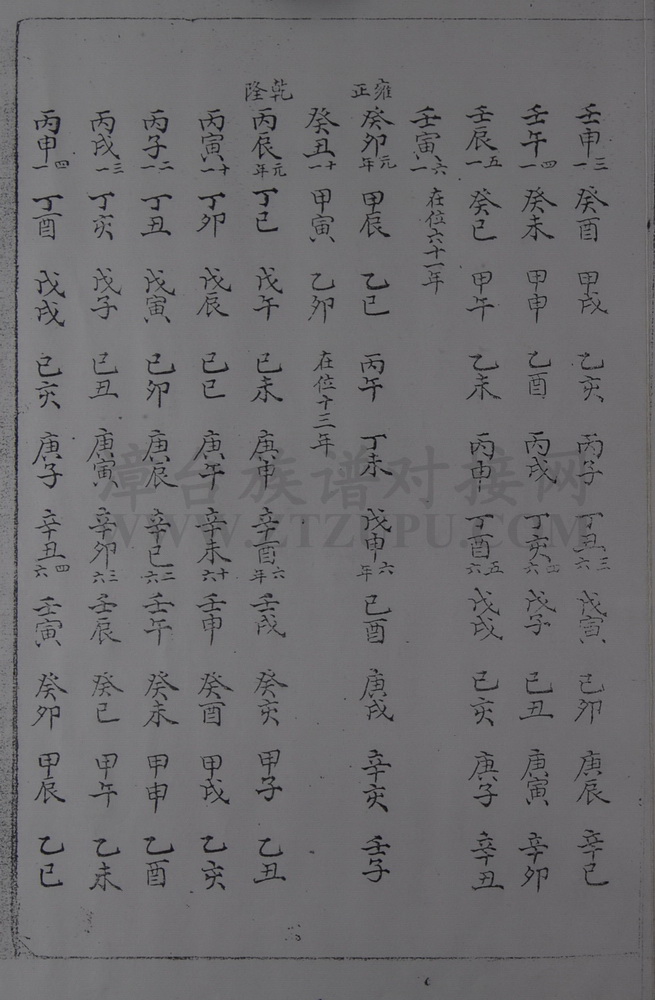 壬申三一 癸酉 甲戌 乙亥 丙子 丁丑三六 戊寅 己卯 庚辰 辛巳
壬午四一 癸未 甲申 乙酉 丙戌 丁亥四六 戊子 己丑 庚寅 辛卯
壬辰五一 癸巳 甲午 乙未 丙申 丁酉五六 戊戌 己亥 庚子 辛丑
壬寅六一 在位六十一年
雍正
癸卯元年 甲辰 乙巳 丙午 丁未 戊申六年 己酉 庚戌 辛亥 壬子
癸丑十一 甲寅 乙卯 在位十三年
乾隆
丙辰元年 丁巳 戊午 己未 庚申 辛酉六年 壬戌 癸亥 甲子 乙丑
丙寅十一 丁卯 戊辰 己巳 庚午 辛未十六 壬申 癸酉 甲戌 乙亥
丙子二一 丁丑 戊寅 己卯 庚辰 辛巳二六 壬午 癸未 甲申 乙酉
丙戌三一 丁亥 戊子 己丑 庚寅 辛卯三六 壬辰 癸巳 甲午 乙未
丙申四一 丁酉 戊戌 己亥 庚子 辛丑四六 壬寅 癸卯 甲辰 乙巳
漳台族谱对接网
WWW.ZTZUPU.COM